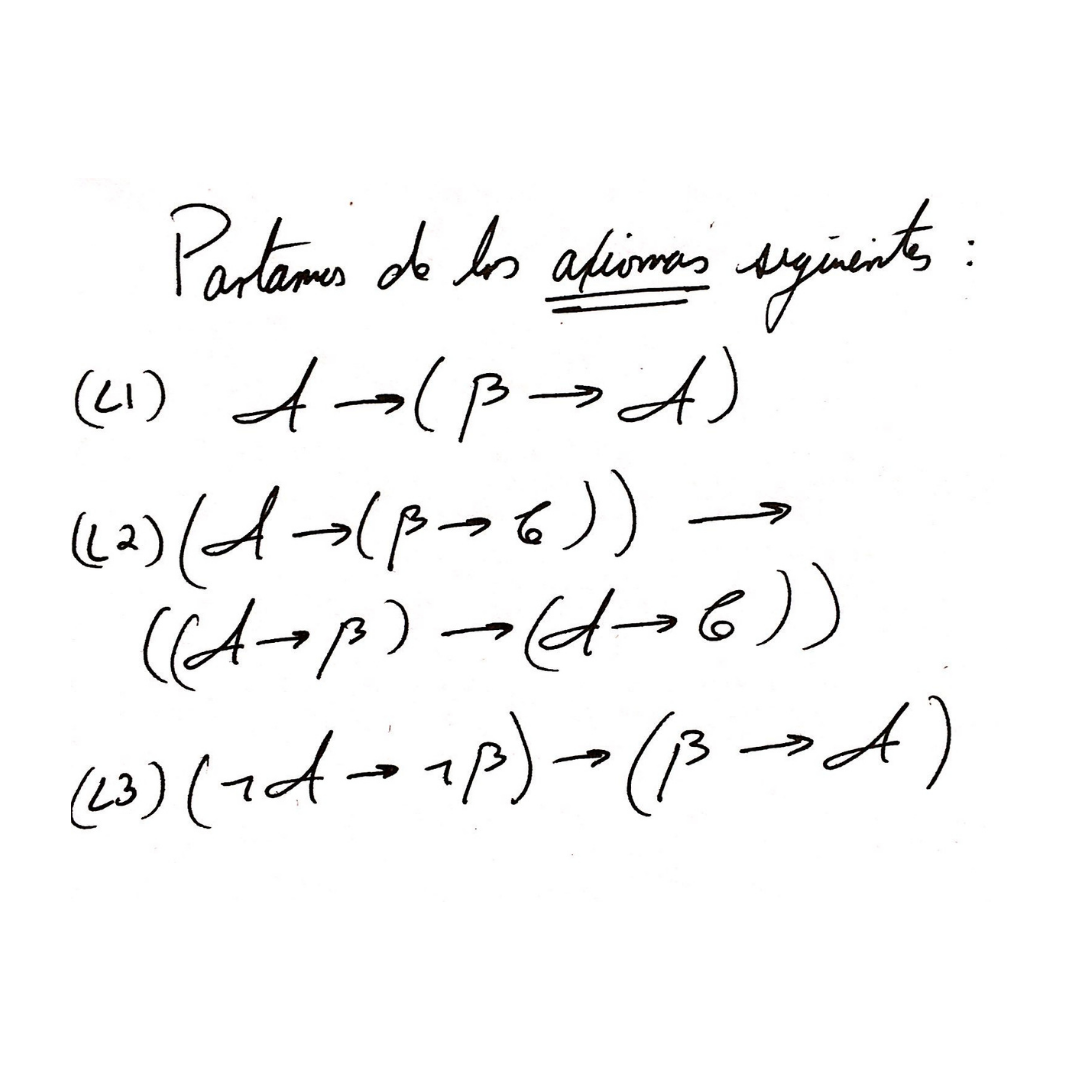 Partamos de los axiomas siguientes:
(L1) A → (B → A)
(L2) (A → (B → C)) →
((A → B) → (A → C))
(L3) (¬A → ¬B) → (B → A)